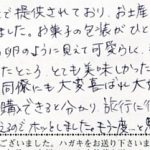 で提供されており、お土産
ました。お菓子の包装がひと
卵のように見えて可愛らしく、
たところ、とても美味しかった
同僚にも大変喜ばれ大
購入できると分かり旅行に行
えるのでホッとしました。もう一度
ございました。ハガキをお送り下さいま